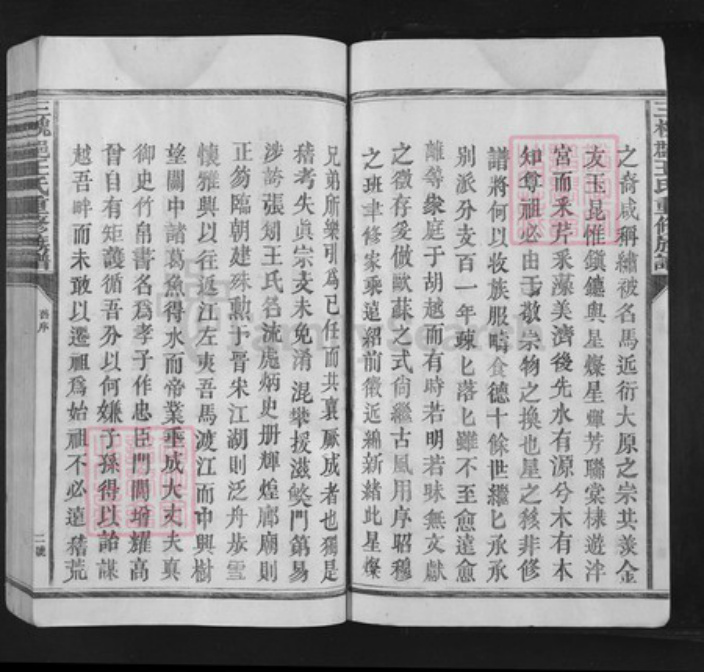 之裔咸稱繡被名馬近衍大原之宗其羨金
友玉昆惟鎭鏈與星燦星輝芳聯棠棣遊泮
宮而釆芹釆藻美濟後先水有源兮木有本
知尊祖必由于敬宗物之換也星之移非修
譜將何以收族服疇食德十餘世繼匕承承
別派分支百一年疎匕落匕雖不至愈遠愈
離等衆庭于胡越而有時若明若昧無文獻
之徵存爰倣歐蘇之式尙繼古風用序昭穆
之班聿修家乘遠紹前徵近綿新緒此星燦
兄弟所樂引爲己任而共襄厥成者也獨是
稽考失眞宗支未免淆混攀援滋獘門第易
涉誇張刱王氏名流彪炳史册輝煌廊廟則
正笏臨朝建殊勲于晋宋江湖則泛舟步雪
懷雅興以往返江左夷吾馬渡江而中興樹
望關中諸葛魚得水而帝業垂成大丈夫眞
御史竹帛書名爲孝子作忠臣門閭增耀高
曾自有矩護循吾分以何嫌子孫得以詒謀
越吾畔而未敢以遷祖爲始祖不必遠稽荒
三槐邑王氏重修族譜
舊序
二號